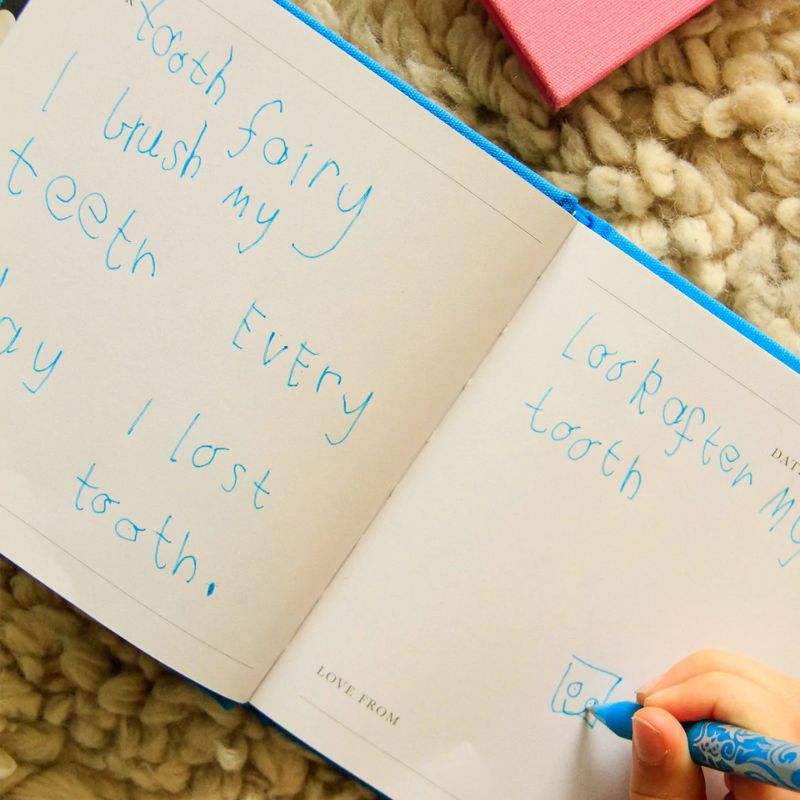 tooth fairy
I brush my
teeth Every
day I lost
tooth.
Look after my
tooth
LOVE FROM